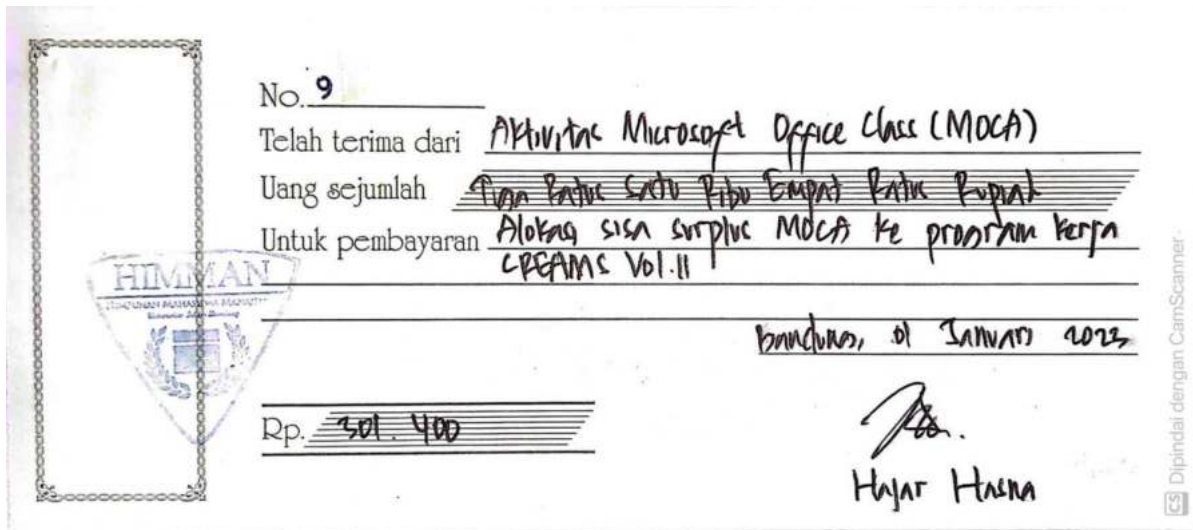 No. 9
Telah terima dari Aktivitas Microsoft Office Class (MOCA)
Uang sejumlah Tiga Ratus Satu Ribu Empat Ratus Rupiah
Untuk pembayaran Alokasi sisa surplus MOCA ke program kerja
CREAMS Vol.II
HIMMAN
HIMPUNAN MAHASISWA
Bandung, 01 Januari 2023
Rp. 301.400
Hajar Hasna
CS Dipindai dengan CamScanner